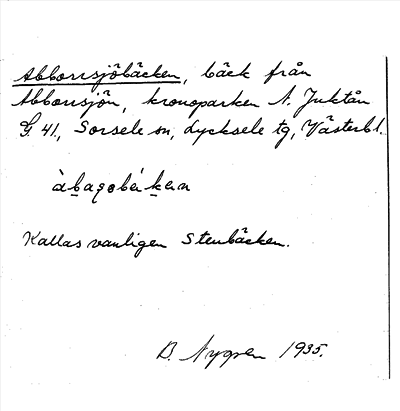 Abborrsjöbäcken, bäck från
Abborrsjön, kronoparken N. Juktån
G. 41, Sorsele sn, Lycksele tg, Västerb l.
Kallas vanligen Stenbäcken.
B. Nygren 1935.